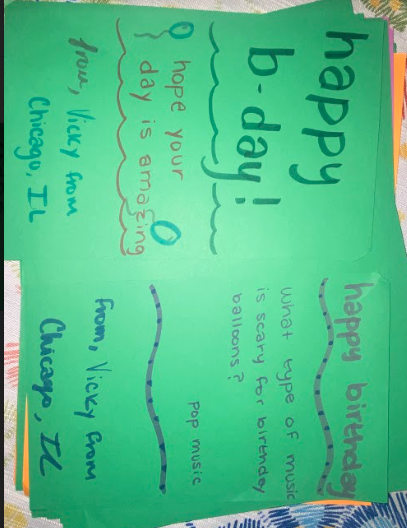 happy
b-day!
hope your
day is amazing
from, Vicky from
Chicago, IL
happy birthday
What type of music
is scary for birthday
balloons?
Pop music
from, Vicky from
Chicago, IL